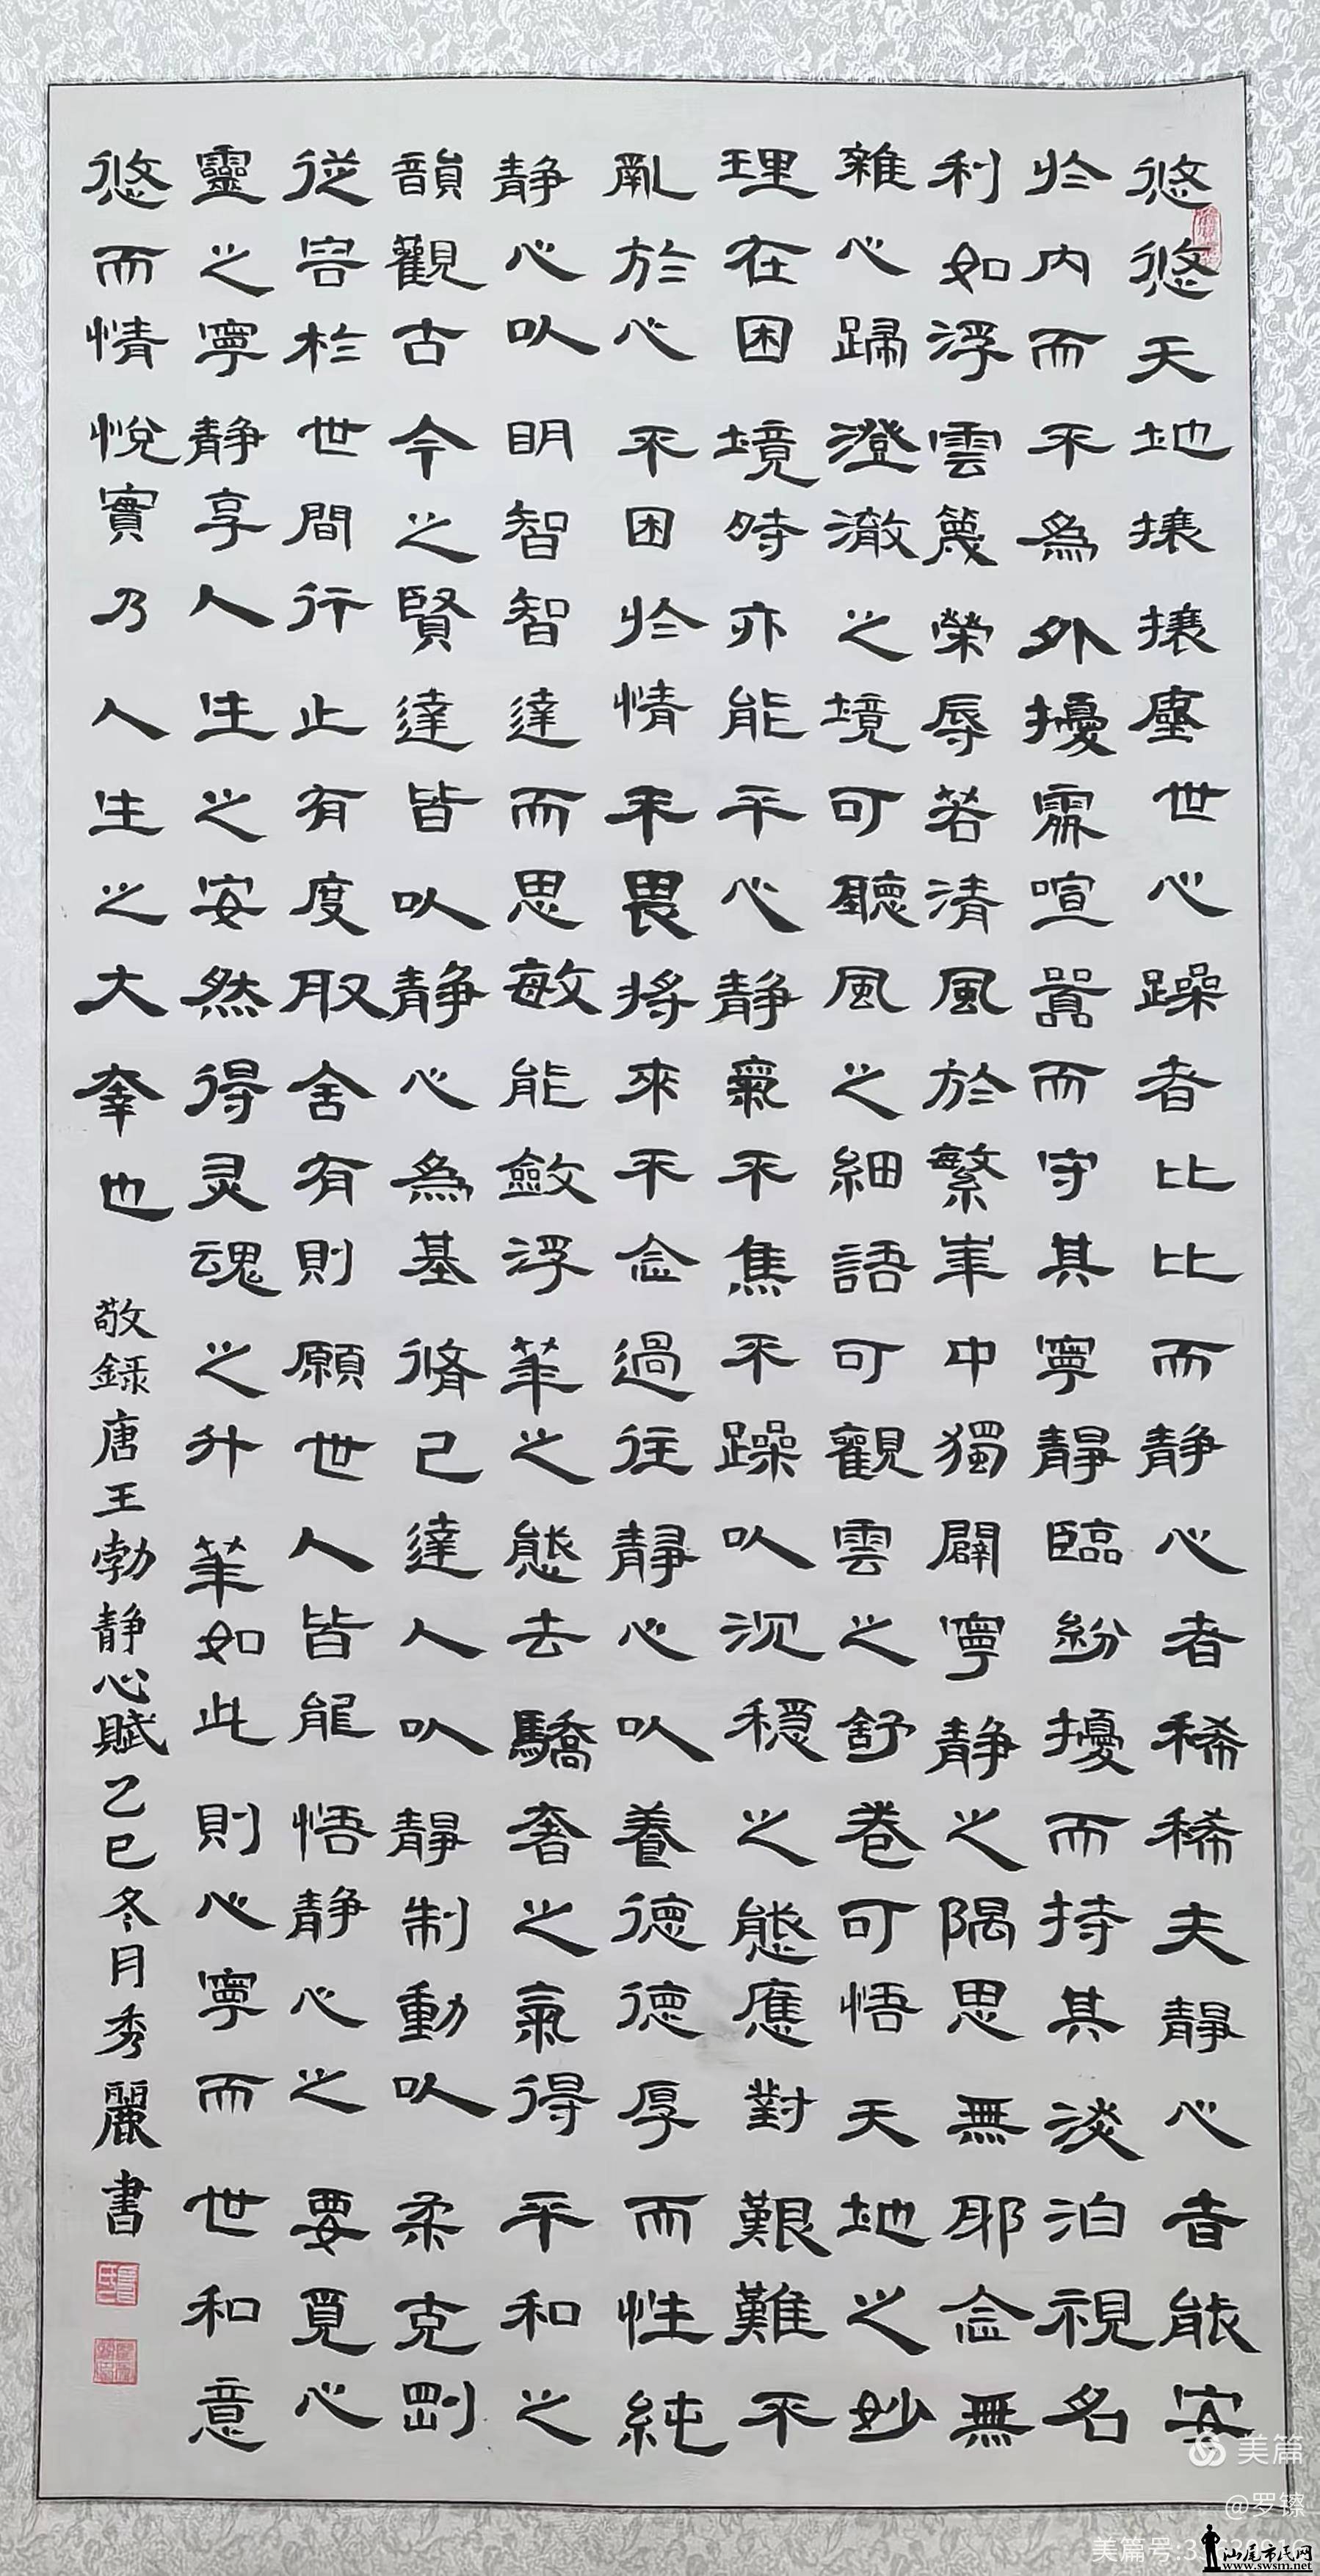 悠悠天地攘攘塵世心躁者比比而静心者稀稀夫靜心者能安
於内而不為外擾處喧囂而守其寧靜臨紛擾而持其淡泊視名
利如浮雲篾榮辱若清風於繁華中獨闢寧静之隅思無邪念無
雜心歸澄澈之境可聽風之細語可觀雲之舒卷可悟天地之妙
理在困境時亦能平心静氣不焦不躁以沉穩之態應對艱難不
亂於心不困於情不畏將來不念過往靜心以養德德厚而性純
静心以明智智達而思敏能斂浮華之態去驕奢之氣得平和之
韻觀古今之賢達皆以静心為基脩己達人以靜制動以柔克剛
從容於世間行止有度取舍有則願世人皆能悟静心之要覓心
靈之寧静享人生之安然得灵魂之升華如此則心寧而世和意
悠而情悅實乃人生之大幸也
敬録唐王勃静心賦乙巳冬月秀麗書
美篇
@罗镲
美篇号:
汕尾市民网
www.swsm.net